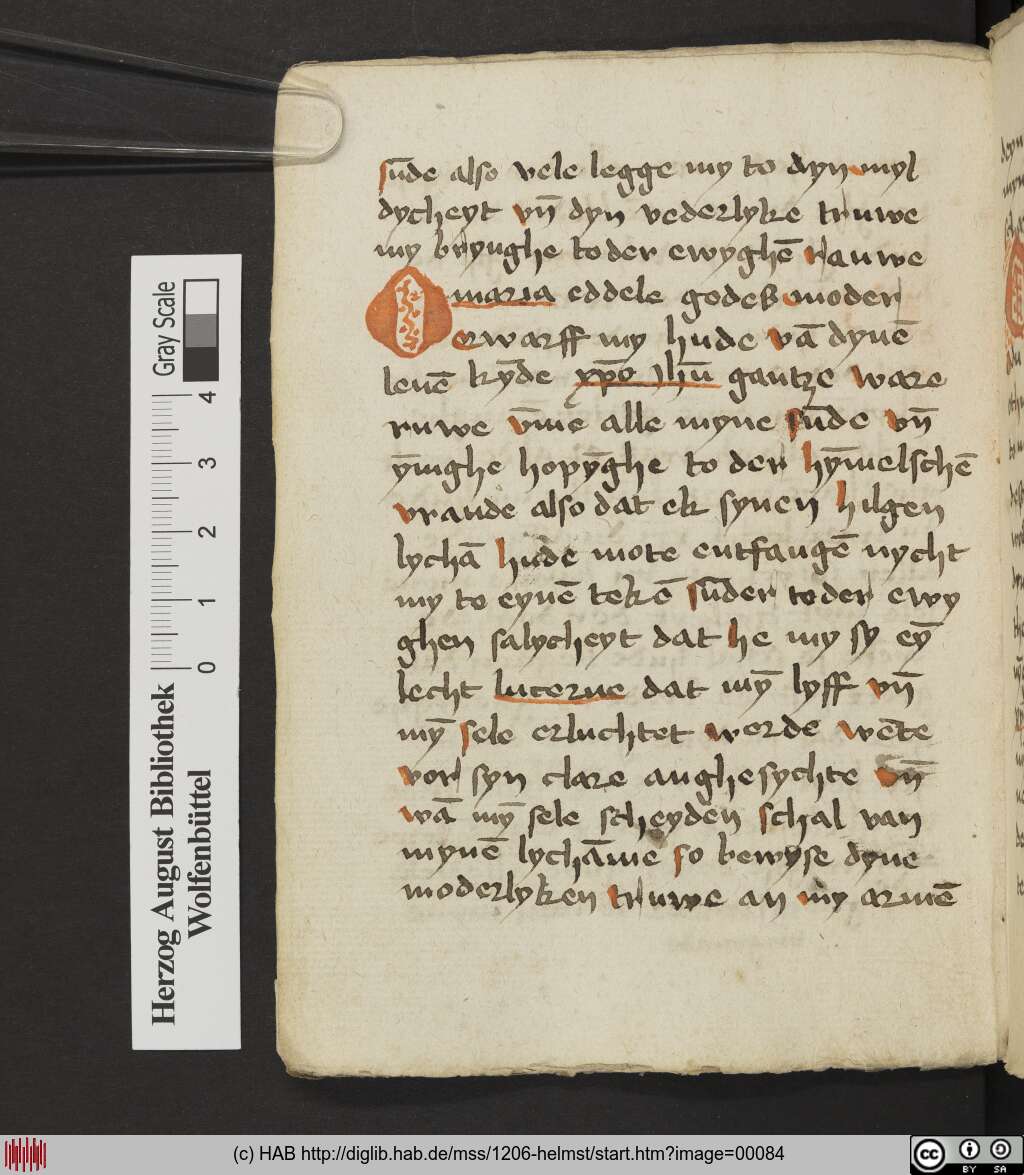 sūde also vele legge my to dyn myl
dycheyt vn̄ dyn vederlyke truwe
my brynghe to der ewyghē rauwe
O maria eddele godes moder
erwarff my hude vā dynē
levē kȳde xp̄o jhū gantze ware
ruwe v̄me alle myne sūde vn̄
ȳnighe hopȳghe to der hȳmelschē
vraude also dat ek synen hilgen
lychā hude mote entfangē nycht
my to eynē tekē sūder to der ewy
ghen salycheyt dat he my sy eȳ
lecht lucerne dat mȳ lyff vn̄
mȳ sele erluchtet werde wēte
vor syn clare anghesychte vn̄
wā mȳ sele scheyden schal van
mynē lychāme so bewyse dyne
moderlyken truwe an my armē
Herzog August Bibliothek
Wolfenbüttel
Gray Scale
0 1 2 3 4
(c) HAB http://diglib.hab.de/mss/1206-helmst/start.htm?image=00084
cc BY SA